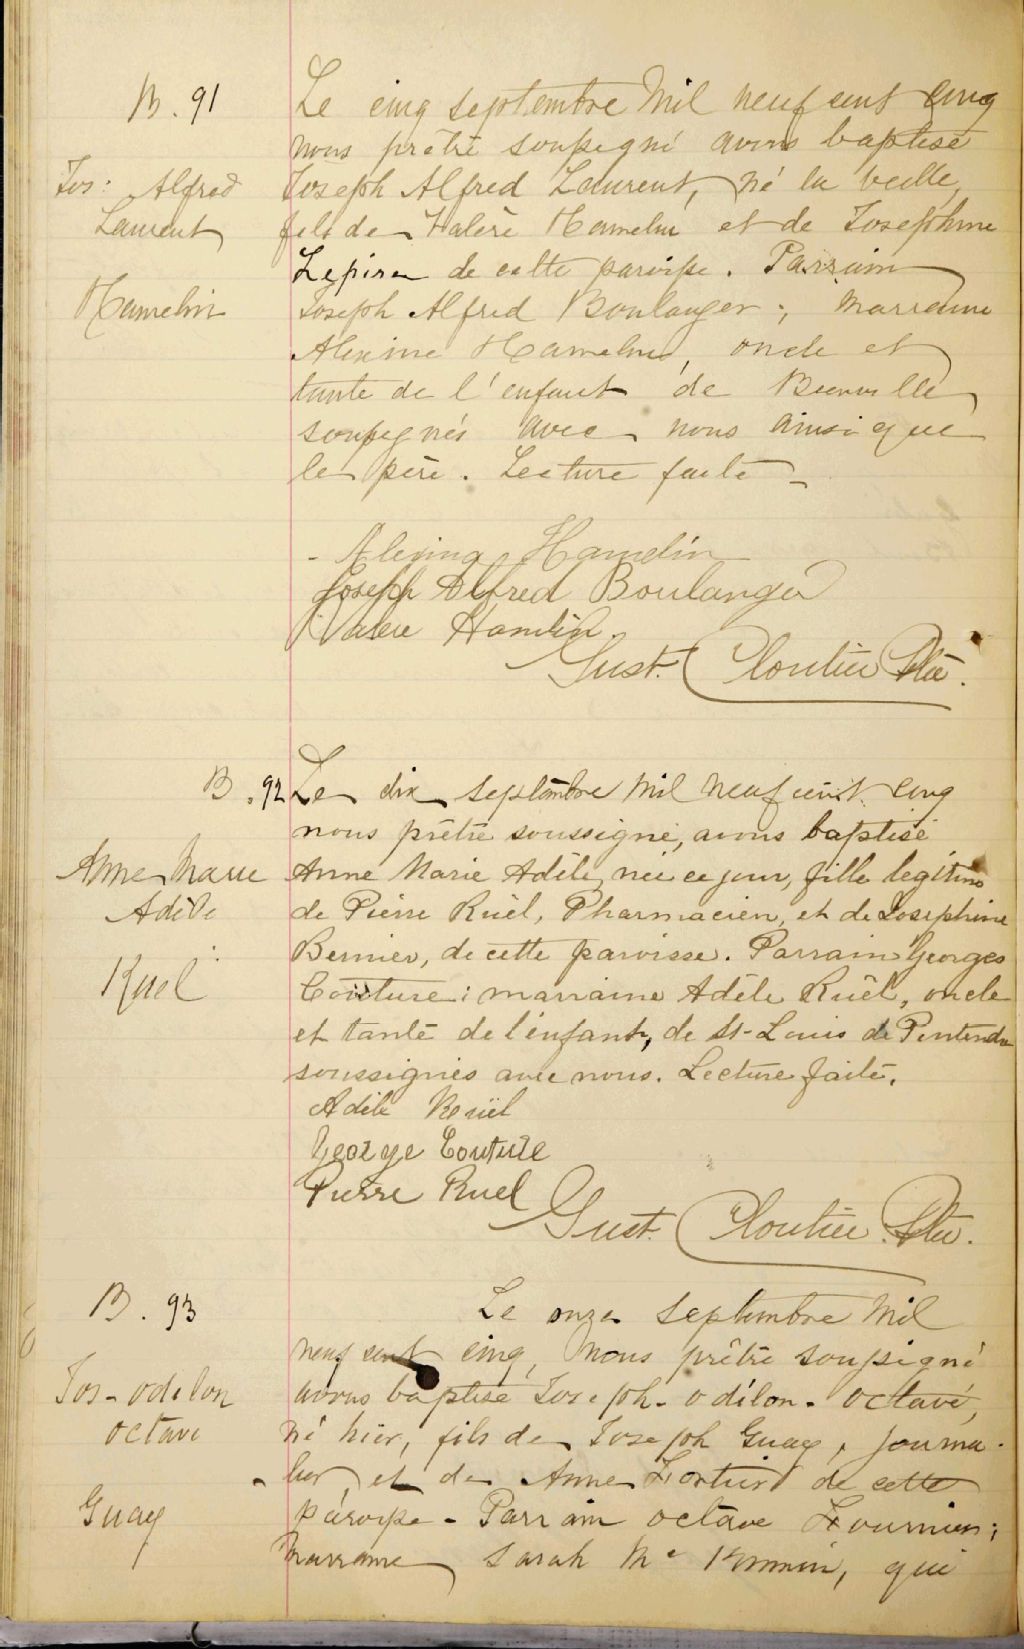 B. 91
Le cinq septembre mil neuf cent cinq
nous prêtre soussigné avons baptisé
Jos: Alfred
Joseph Alfred Laurent, né la veille,
Laurent
fils de Valère Hamelin et de Josephine
Lepire de cette paroisse. Parrain
Hamelin
Joseph Alfred Boulanger; marraine
Alexine Hamelin, oncle et
tante de l'enfant de Bienville
soussignés avec nous ainsi que
le père. Lecture faite
Alexina Hamelin
Joseph Alfred Boulanger
Valere Hamelin
Gust. Cloutier Ptre.
B. 92
Le dix septembre mil neuf cent cinq
nous prêtre soussigné, avons baptisé
Anne Marie
Anne Marie Adèle, née ce jour, fille legitime
Adèle
de Pierre Ruel, Pharmacien, et de Josephine
Bernier, de cette paroisse. Parrain Georges
Ruel
Couture; marraine Adèle Ruel, oncle
et tante de l'enfant, de St-Louis de Pintendre
soussignés avec nous. Lecture faite.
Adèle Ruel
George Couture
Pierre Ruel
Gust. Cloutier Ptre.
B. 93
Le onze septembre mil
neuf cent cinq, nous prêtre soussigné
Jos-odilon
avons baptisé Joseph-odilon-octave,
octave
né hier, fils de Joseph Guay, journa-
lier, et de Anne Fortier de cette
Guay
paroisse - Parrain octave Fournier;
marraine Sarah Mc, qui